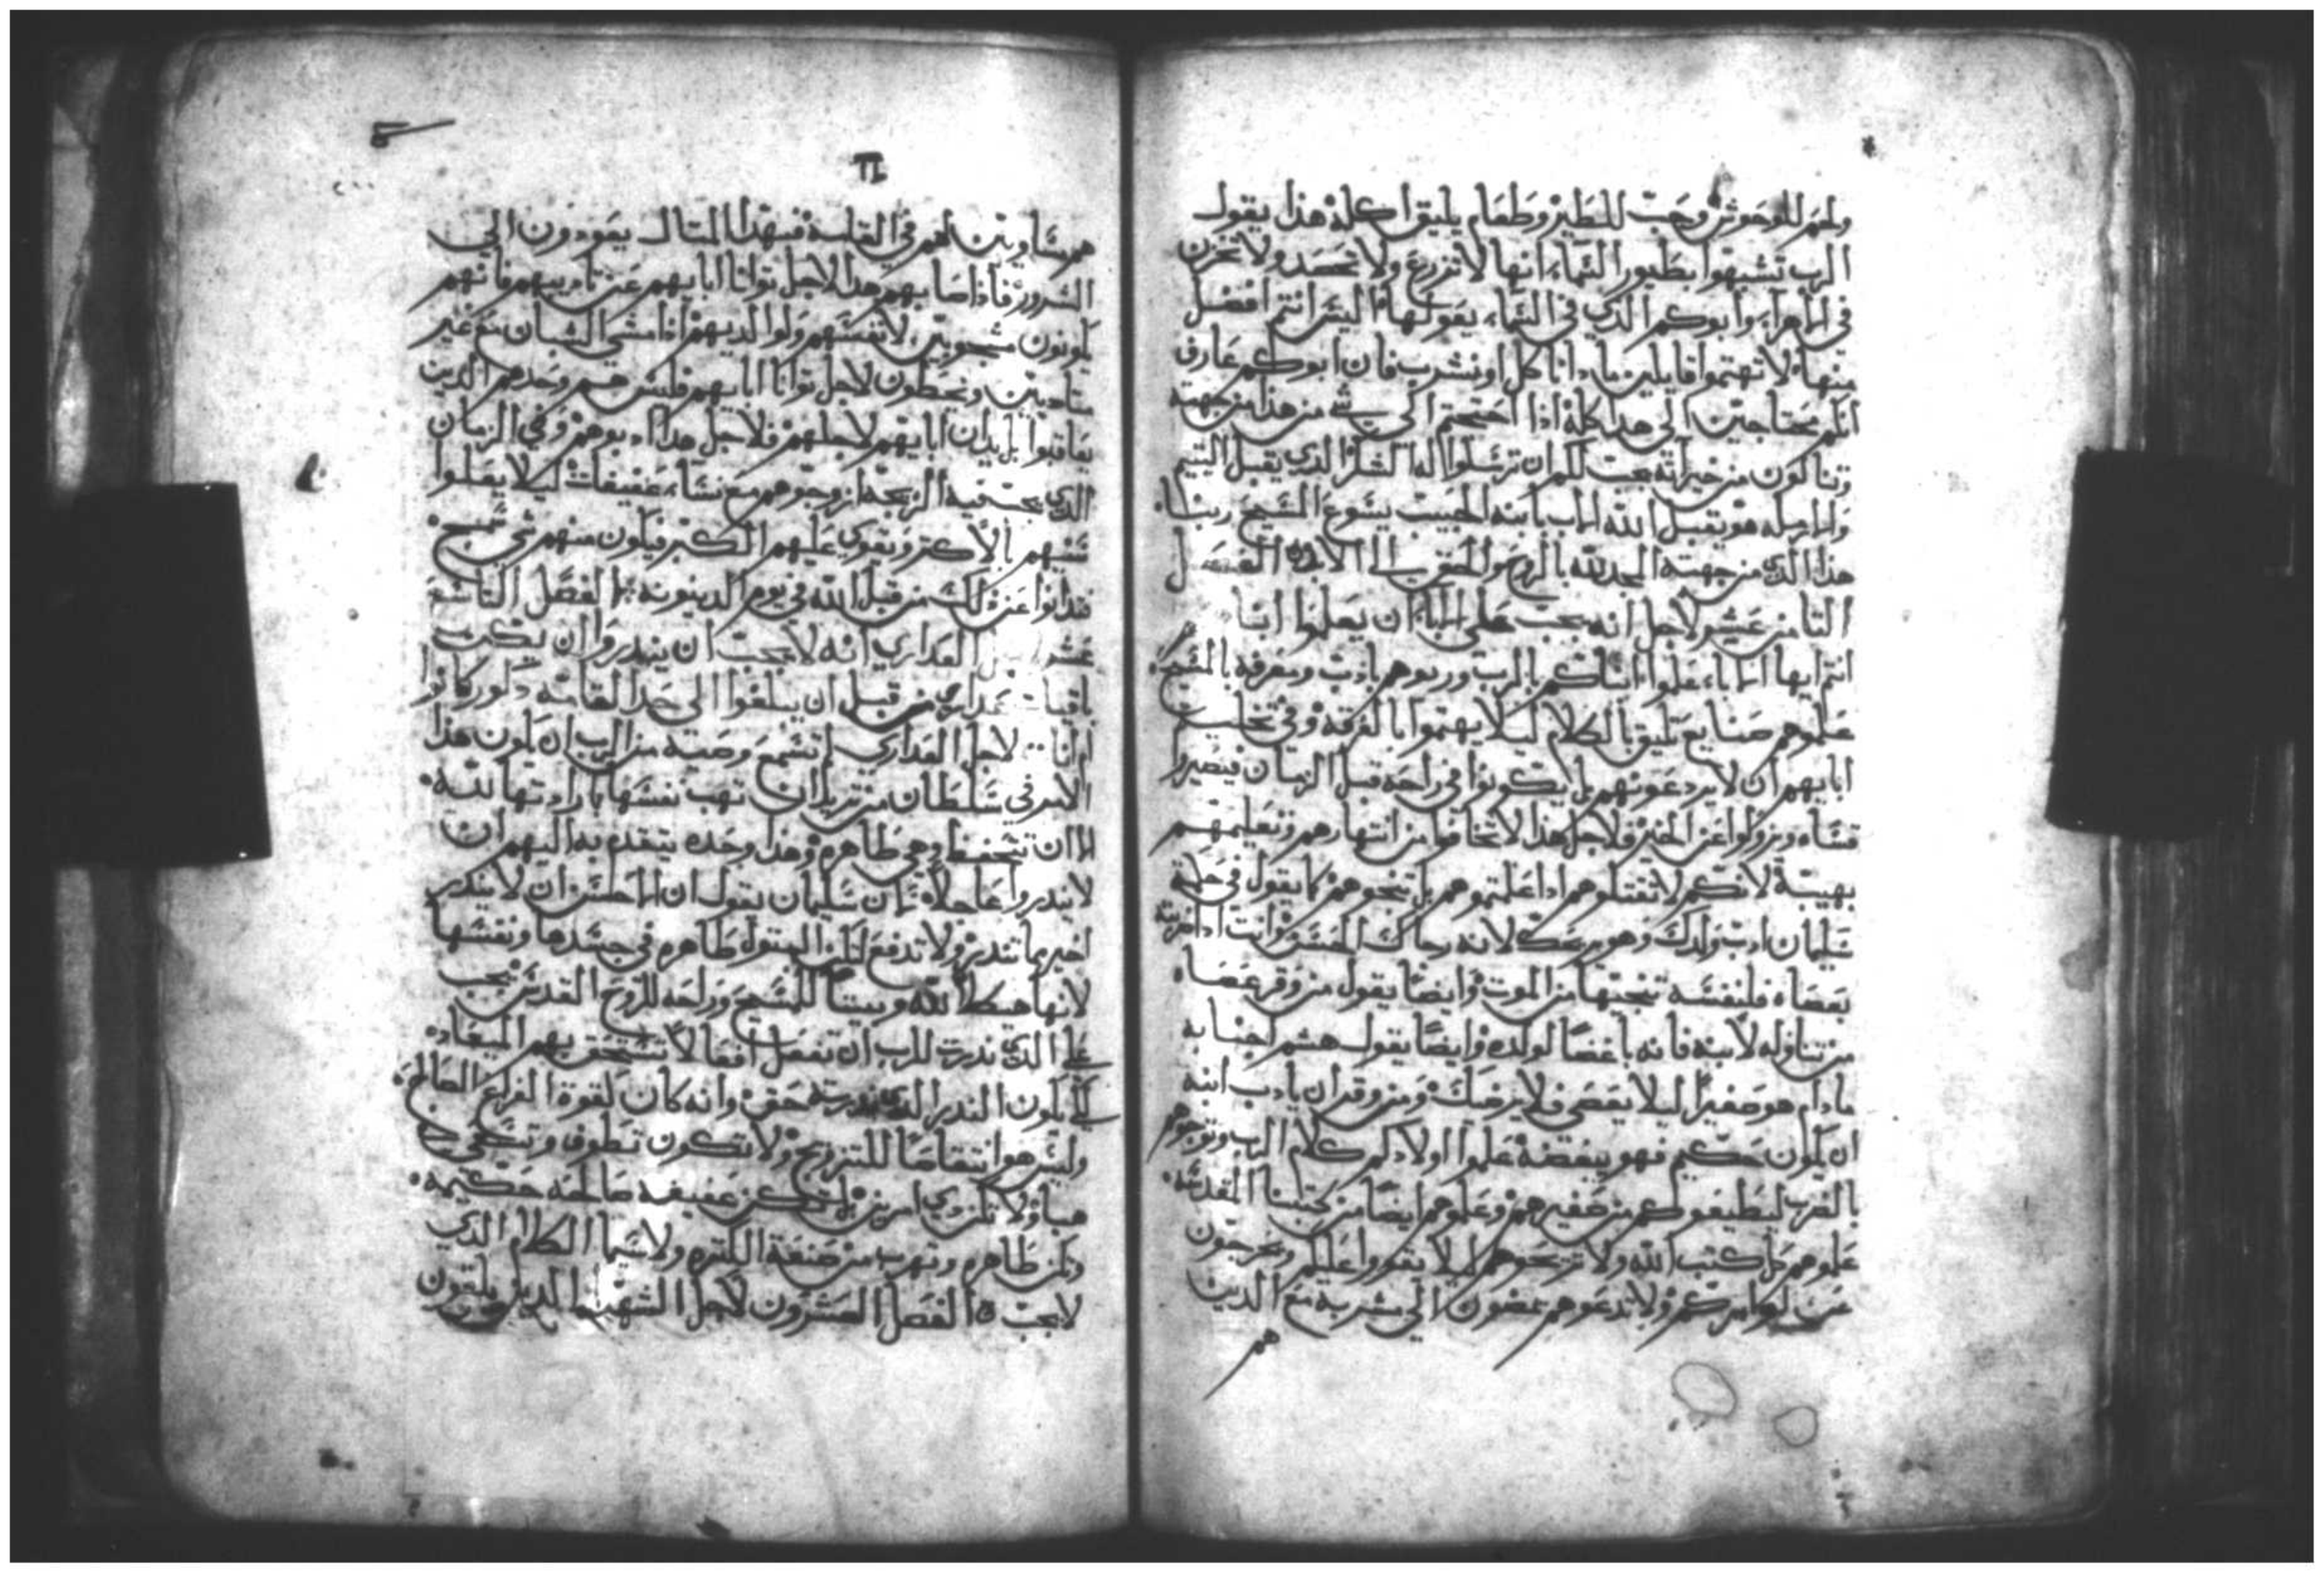 ولحم للوحوش وحب للطير وطعام يليق كله هذا يقول
الرب تشبهوا بطيور السماء انها لا تزرع ولا تحصد ولا تخزن
في الاهراء وابوكم الذي في السماء يقوتها اليس انتم افضل
منها لا تهتموا قايلين ماذا ناكل او نشرب فان ابوكم عارف
انكم محتاجين الى هذا كله اذا احتجتم الى شي من هذا من جهته
وتناكلون من خيراته يجب لكم ان ترسلوا له الشكر الذي يقبل اليتيم
والارمله هو يقبل الله الاب بابنه الحبيب يسوع المسيح ربنا
هذا الذي من جهته المجد لله بالروح والحق الى الابد الفصل
الثامن عشر لاجل انه يجب على الابا ان يعلموا ابنا
انتم ايها الابا علموا ابناكم بالرب وربوهم بادب ومعرفه بالمسيح
علموهم صنايع تليق بالكلام ليلا يهتموا بالفرقه وفي تخليت
ابايهم ان لا يردعونهم بل يكونوا في راحه قبل الزمان فيصيروا
قساه ويزولوا عن الخير فلاجل هذا لا تخافوا من انتهارهم وتعليمهم
بهيبة لانكم لا تقتلوهم اذا علمتموهم بل تنجوهم كما يقول في حكمة
سليمان ادب ولدك وهو يريحك لانه رجاك الحسن وانت اذا ضربته
بعصاه فلنفسه تنجيها من الموت وايضا يقول من وفر عصاه
من تناوله لابنه فانه باغضا لولده وايضا يقول هشم اجنابه
مادام هو صغيرا ليلا يعصى فلا يرضيك ومن وقر ان يادب ابنه
ان يكون حكيم فهو يبغضه علموا اولادكم كلام الرب وتوجوهم
بالضرب ليطيعوكم من صغيرهم وعلموهم ايضا من كتبنا المقدسة
علموهم كل كتب الله ولا تريحوهم ليلا يقووا عليكم ويخرجون
عن اوامركم ولا تدعوهم يمضون الى شربة مع الذين
هم
هم مساويين لهم في القامة فبهذا المثال يعودون الى
الشرور فاذا اصابهم هذا لاجل توانا ابايهم عن تاديبهم فانهم
يكونون مشجوبين لانفسهم ولوالديهم اذا مشى الشبان مع غير
متادبين ويخطون لاجل توانا ابايهم فليس هم وحدهم الذين
يعاقبوا بل يدان ابايهم لاجلهم فلاجل هذا ادبوهم وفي الزمان
الذي يجب فيه الزيجه ازوجوهم مع نساء عفيفات ليلا يعلوا
سنهم بالاكثر ويقوى عليهم الكبر فيكون منهم شي سمج
تدانوا عن ذلك من قبل الله في يوم الدينونه الفصل التاسع
عشر لاجل العداري انه لا يجب ان ينذروا ان يكن
باقيات عداري من قبل ان يبلغوا الى حد القامه ذكور كانوا
او اناث لاجل العداري لم تسمع وصيه من الرب ان يكون هذا
الامر في سلطان من تريد ان تهب نفسها بارادتها لله
الا ان تتحفظ وهي طاهره وهذا وحده يتقدم به اليهم ان
لا ينذروا عاجلا لان سليمان يقول ان الاحسن ان لا ينذر
اخير مما تنذر ولا تدفع لتكن البتول طاهره في جسدها ونفسها
لانها هيكلا لله وبيتا للمسيح وراحه للروح القدس يجب
على الذي نذرت للرب ان تفعل افعالا تستحق بهم الميعاد
لكي يكون النذر الذي نذرته حق وانه كان لقوة الفراغ الصالح
وليس هو انتقاصا للتزويج ولا تكون تطوف وتحكي
هباء ولا تكن ذي امرين بل تكن عفيفه صالحه حكيمه
وتكن طاهره وتهرب من صنعة الكثره ولا سيما الكلام الذي
لا يجب الفصل العشرون لاجل الشهدا الذين يلقون